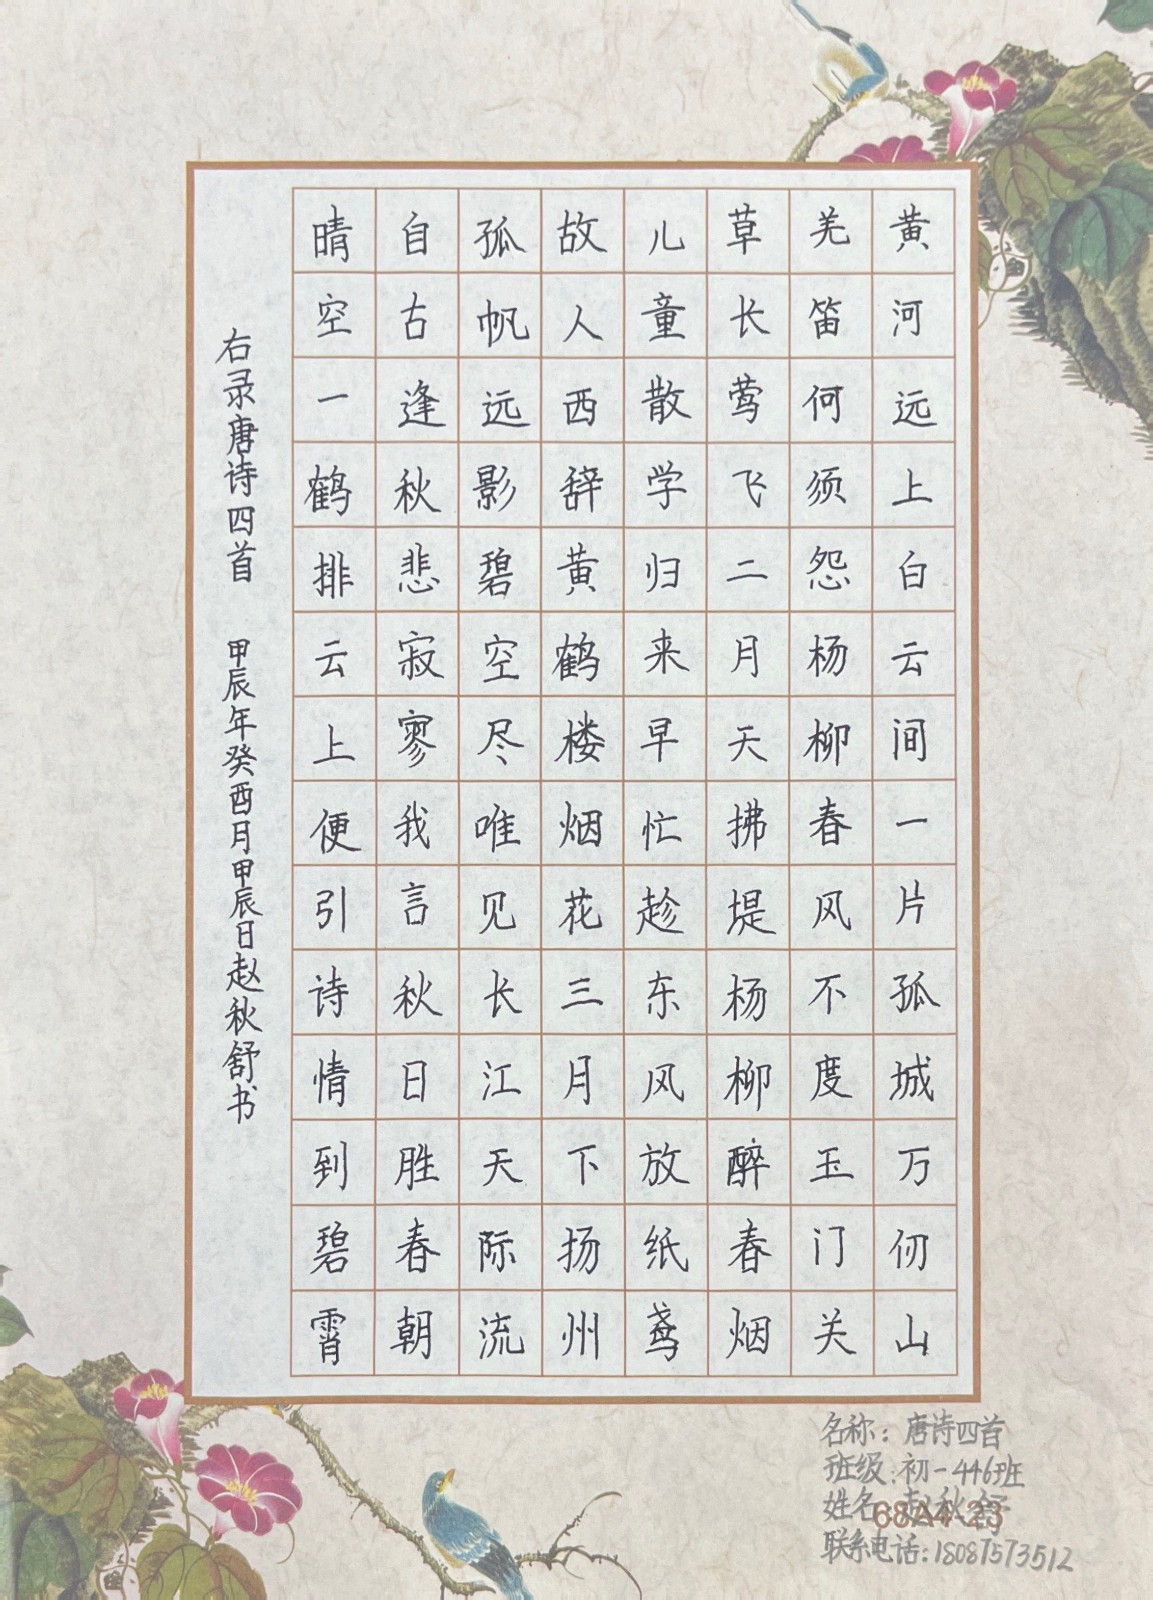 黄河远上白云间一片孤城万仞山
羌笛何须怨杨柳春风不度玉门关
草长莺飞二月天拂堤杨柳醉春烟
儿童散学归来早忙趁东风放纸鸢
故人西辞黄鹤楼烟花三月下扬州
孤帆远影碧空尽唯见长江天际流
自古逢秋悲寂寥我言秋日胜春朝
晴空一鹤排云上便引诗情到碧霄
右录唐诗四首 甲辰年癸酉月甲辰日赵秋舒书
名称：唐诗四首
班级：初一446班
姓名：赵秋舒
68A4-23
联系电话：18087573512